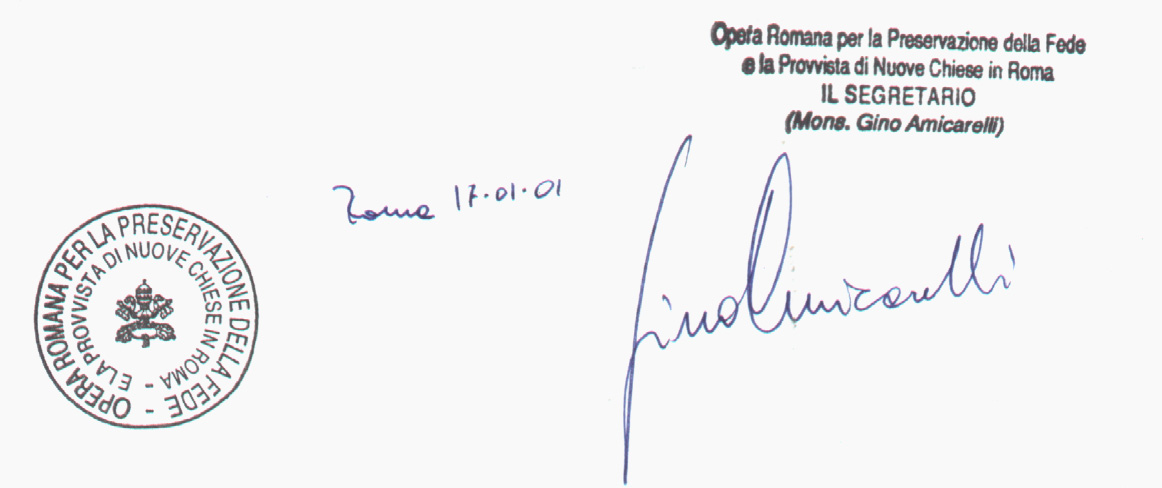 Opera Romana per la Preservazione della Fede
e la Provvista di Nuove Chiese in Roma
IL SEGRETARIO
(Mons. Gino Amicarelli)
Roma 17.01.01
Gino Amicarelli
OPERA ROMANA PER LA PRESERVAZIONE DELLA FEDE -
E LA PROVVISTA DI NUOVE CHIESE IN ROMA -